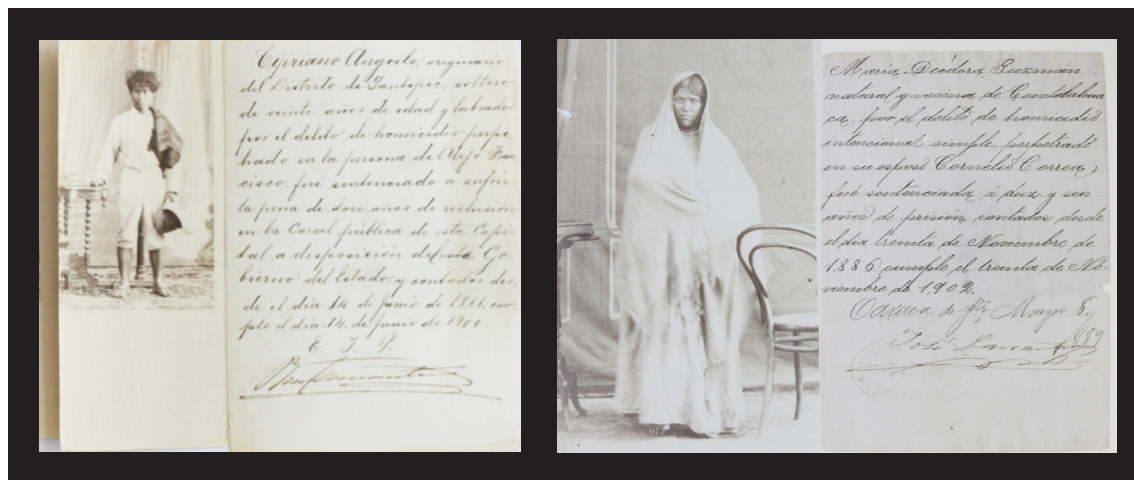 Cipriano Angulo, originario
del Distrito de Yautepec, soltero,
de veinte años de edad y labrador
por el delito de homicidio perpe
trado en la persona de Alejo Fran
cisco, fué sentenciado a sufrir
la pena de doce años de reclusión
en la Carcel pública de esta Capi
tal a disposición del Go-
bierno del Estado, y contados des
de el dia 14 de junio de 1888, cum
ple el dia 14 de junio de 1900
E. J. P.
María Deodora Guzmán
natural y vecina de
ca, por el delito de homicidio
intencional simple perpetrado
en su esposo Cornelio Correa,
fué sentenciada á diez y seis
años de prisión, contados desde
el dia treinta de Noviembre de
1886 cumple el treinta de No-
viembre de 1902.
Oaxaca de Jz, Mayo 8,
José